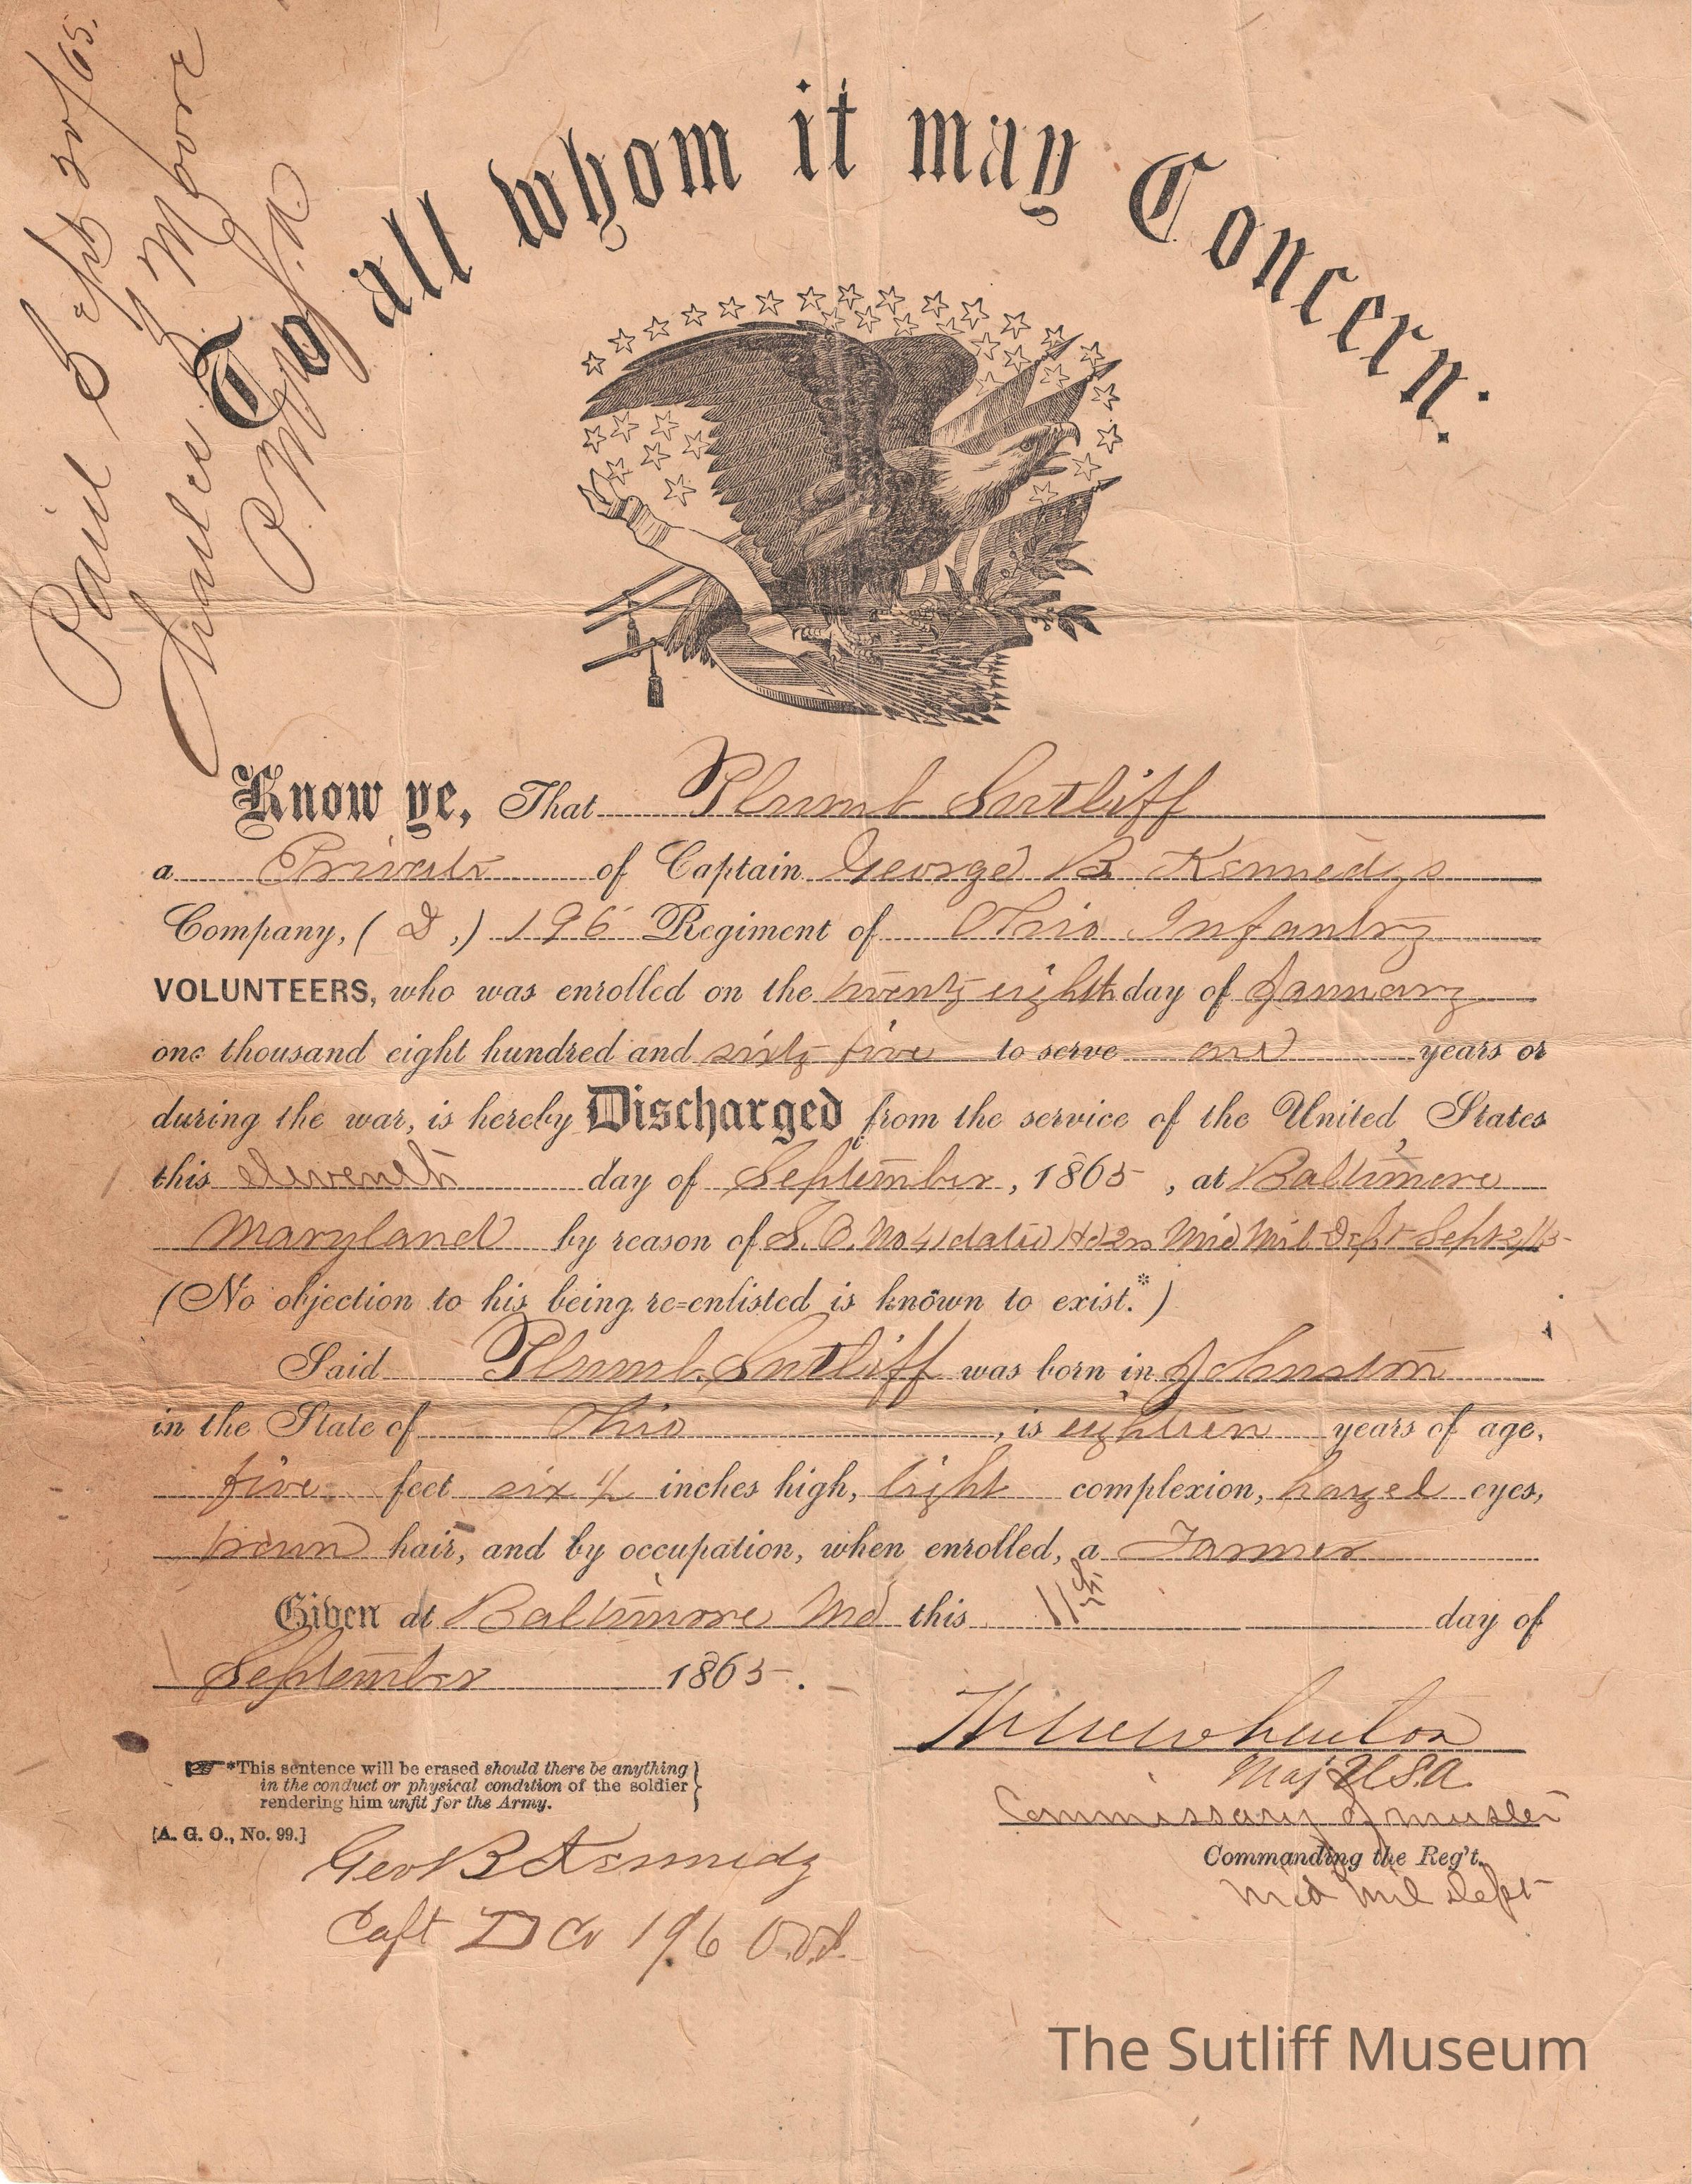 Paid Sept 20/65.
Charles J. Moore
P.M. U.S.A.
To all whom it may Concern:
Know ye, That Plumb Sutliff
a Private of Captain George B Kennedys
Company, ( D, ) 196 Regiment of Ohio Infantry
VOLUNTEERS, who was enrolled on the twenty eighth day of January
one thousand eight hundred and sixty five to serve one years or
during the war, is hereby Discharged from the service of the United States
this eleventh day of September, 1865, at Baltimore
Maryland by reason of S.O. No 41 dated Hd Qrs Mid Mil Dept Sept 2/65
(No objection to his being re=enlisted is known to exist.*)
Said Plumb Sutliff was born in Johnston
in the State of Ohio, is eighteen years of age,
five feet six ½ inches high, light complexion, hazel eyes,
brown hair, and by occupation, when enrolled, a Farmer
Given at Baltimore Md this 11th day of
September 1865.
Maj U.S.A.
*This sentence will be erased should there be anything
in the conduct or physical condition of the soldier
rendering him unfit for the Army.
Commissary of muster
[A. G. O., No. 99.]
Commanding the Reg't.
Mid Mil Dept
Geo B Kennedy
Capt D Co 196 O.V.I.
The Sutliff Museum